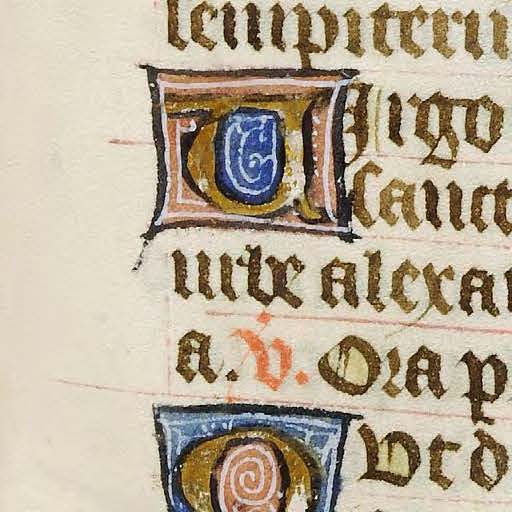 sempitern
VIrgo
sanct
urbe alexan
a. V. Ora p
Vt d